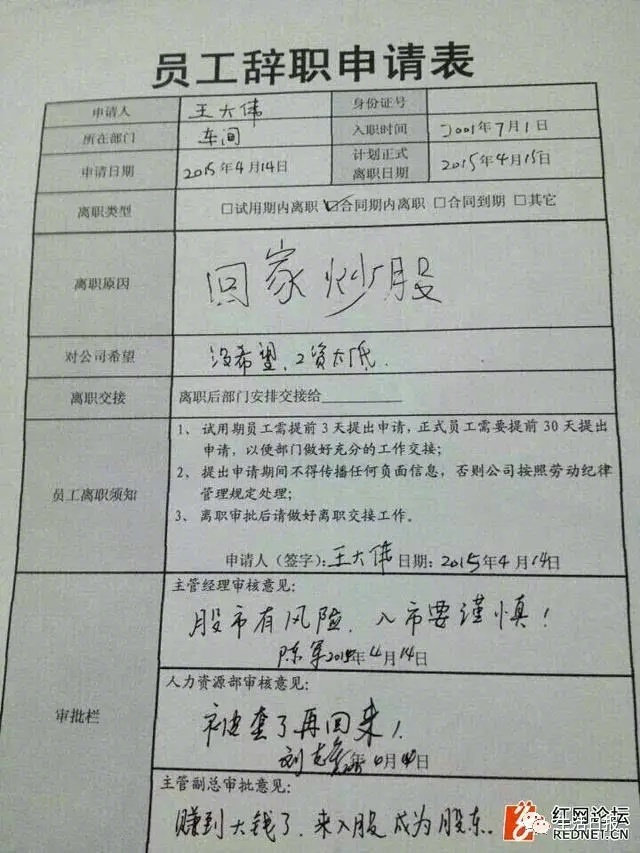 员工辞职申请表
申请人 王大伟 身份证号
所在部门 车间 入职时间 2001年7月1日
申请日期 2015年4月14日 计划正式离职日期 2015年4月15日
离职类型 □试用期内离职 ☑合同期内离职 □合同到期 □其它
离职原因 回家炒股
对公司希望 没希望,工资太低.
离职交接 离职后部门安排交接给________
员工离职须知
1、试用期员工需提前3天提出申请,正式员工需要提前30天提出
申请,以便部门做好充分的工作交接;
2、提出申请期间不得传播任何负面信息,否则公司按照劳动纪律
管理规定处理;
3、离职审批后请做好离职交接工作。
申请人(签字):王大伟 日期:2015年4月14日
审批栏
主管经理审核意见:
股市有风险,入市要谨慎!
陈军 2015年4月14日
人力资源部审核意见:
被套了再回来!
年4月14日
主管副总审批意见:
赚到大钱了,来入股成为股东.
红网论坛
REDNET.CN